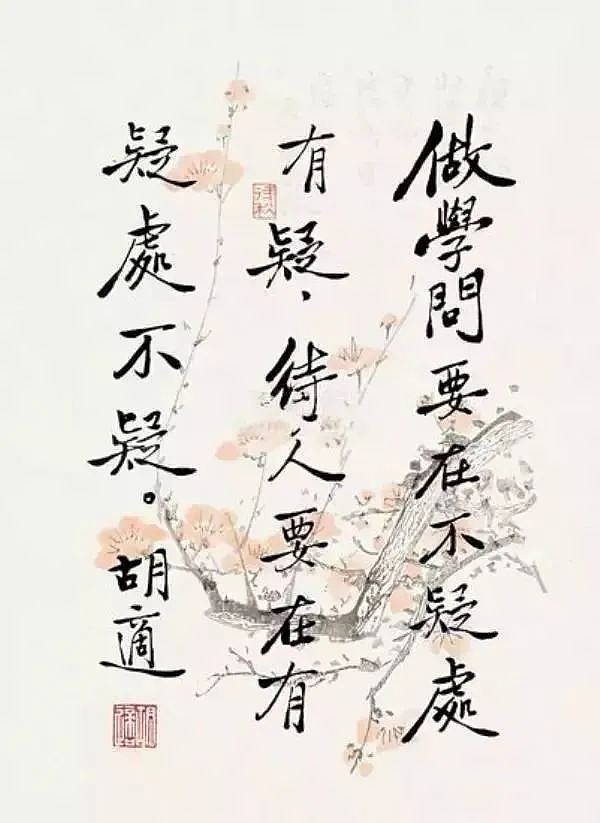 做學問要在不疑處
有疑、待人要在有
疑處不疑。
胡適